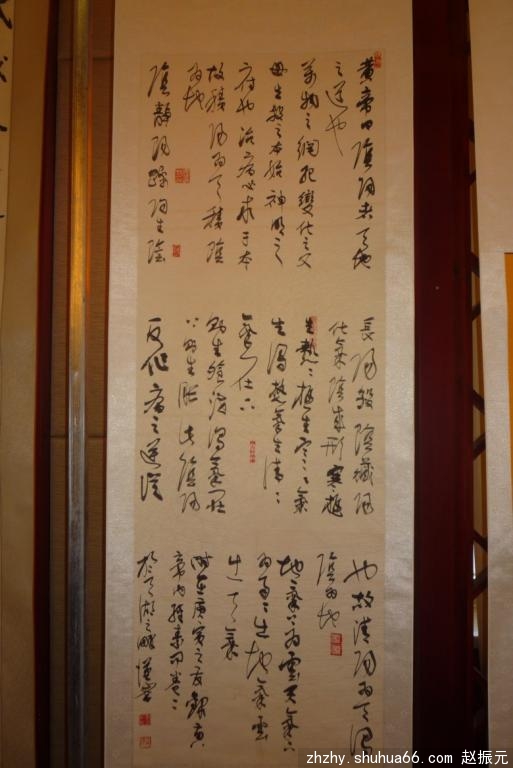 黃帝曰陰陽者天地
之道也
萬物之綱紀變化之父
母生殺之本始神明之
府也治病必求于本
故積陽為天積陰
為地
陰靜陽躁陽生陰
長陽殺陰藏陽
化氣陰成形寒極
生熱〻極生寒〻氣
生濁熱氣生清〻
氣在下
則生飧泄濁氣在
上則生䐜脹此陰陽
反作病之逆從
也故清陽為天濁
陰為地
地氣上為雲天氣下
為雨〻出地氣雲
出天氣
時在庚寅之夏錄黃
帝內經素問卷二
於天湖之畔
zhzhy.shuhua66.com 赵振元